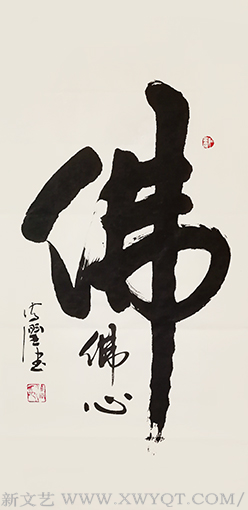 佛
佛心
新文艺 WWW.XWYQT.COM